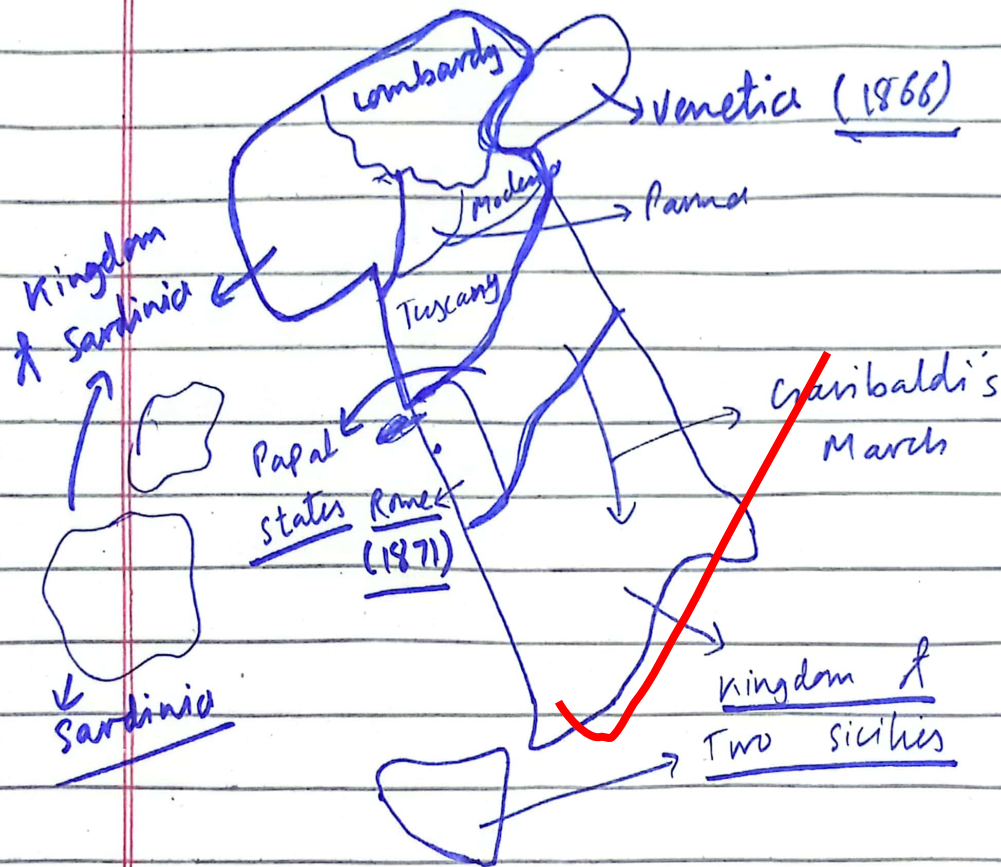 Lombardy
Venetia (1866)
Modena
Parma
Kingdom
of Sardinia
Tuscany
Garibaldi's
March
Papal
states
Rome
(1871)
Sardinia
Kingdom of
Two Sicilies